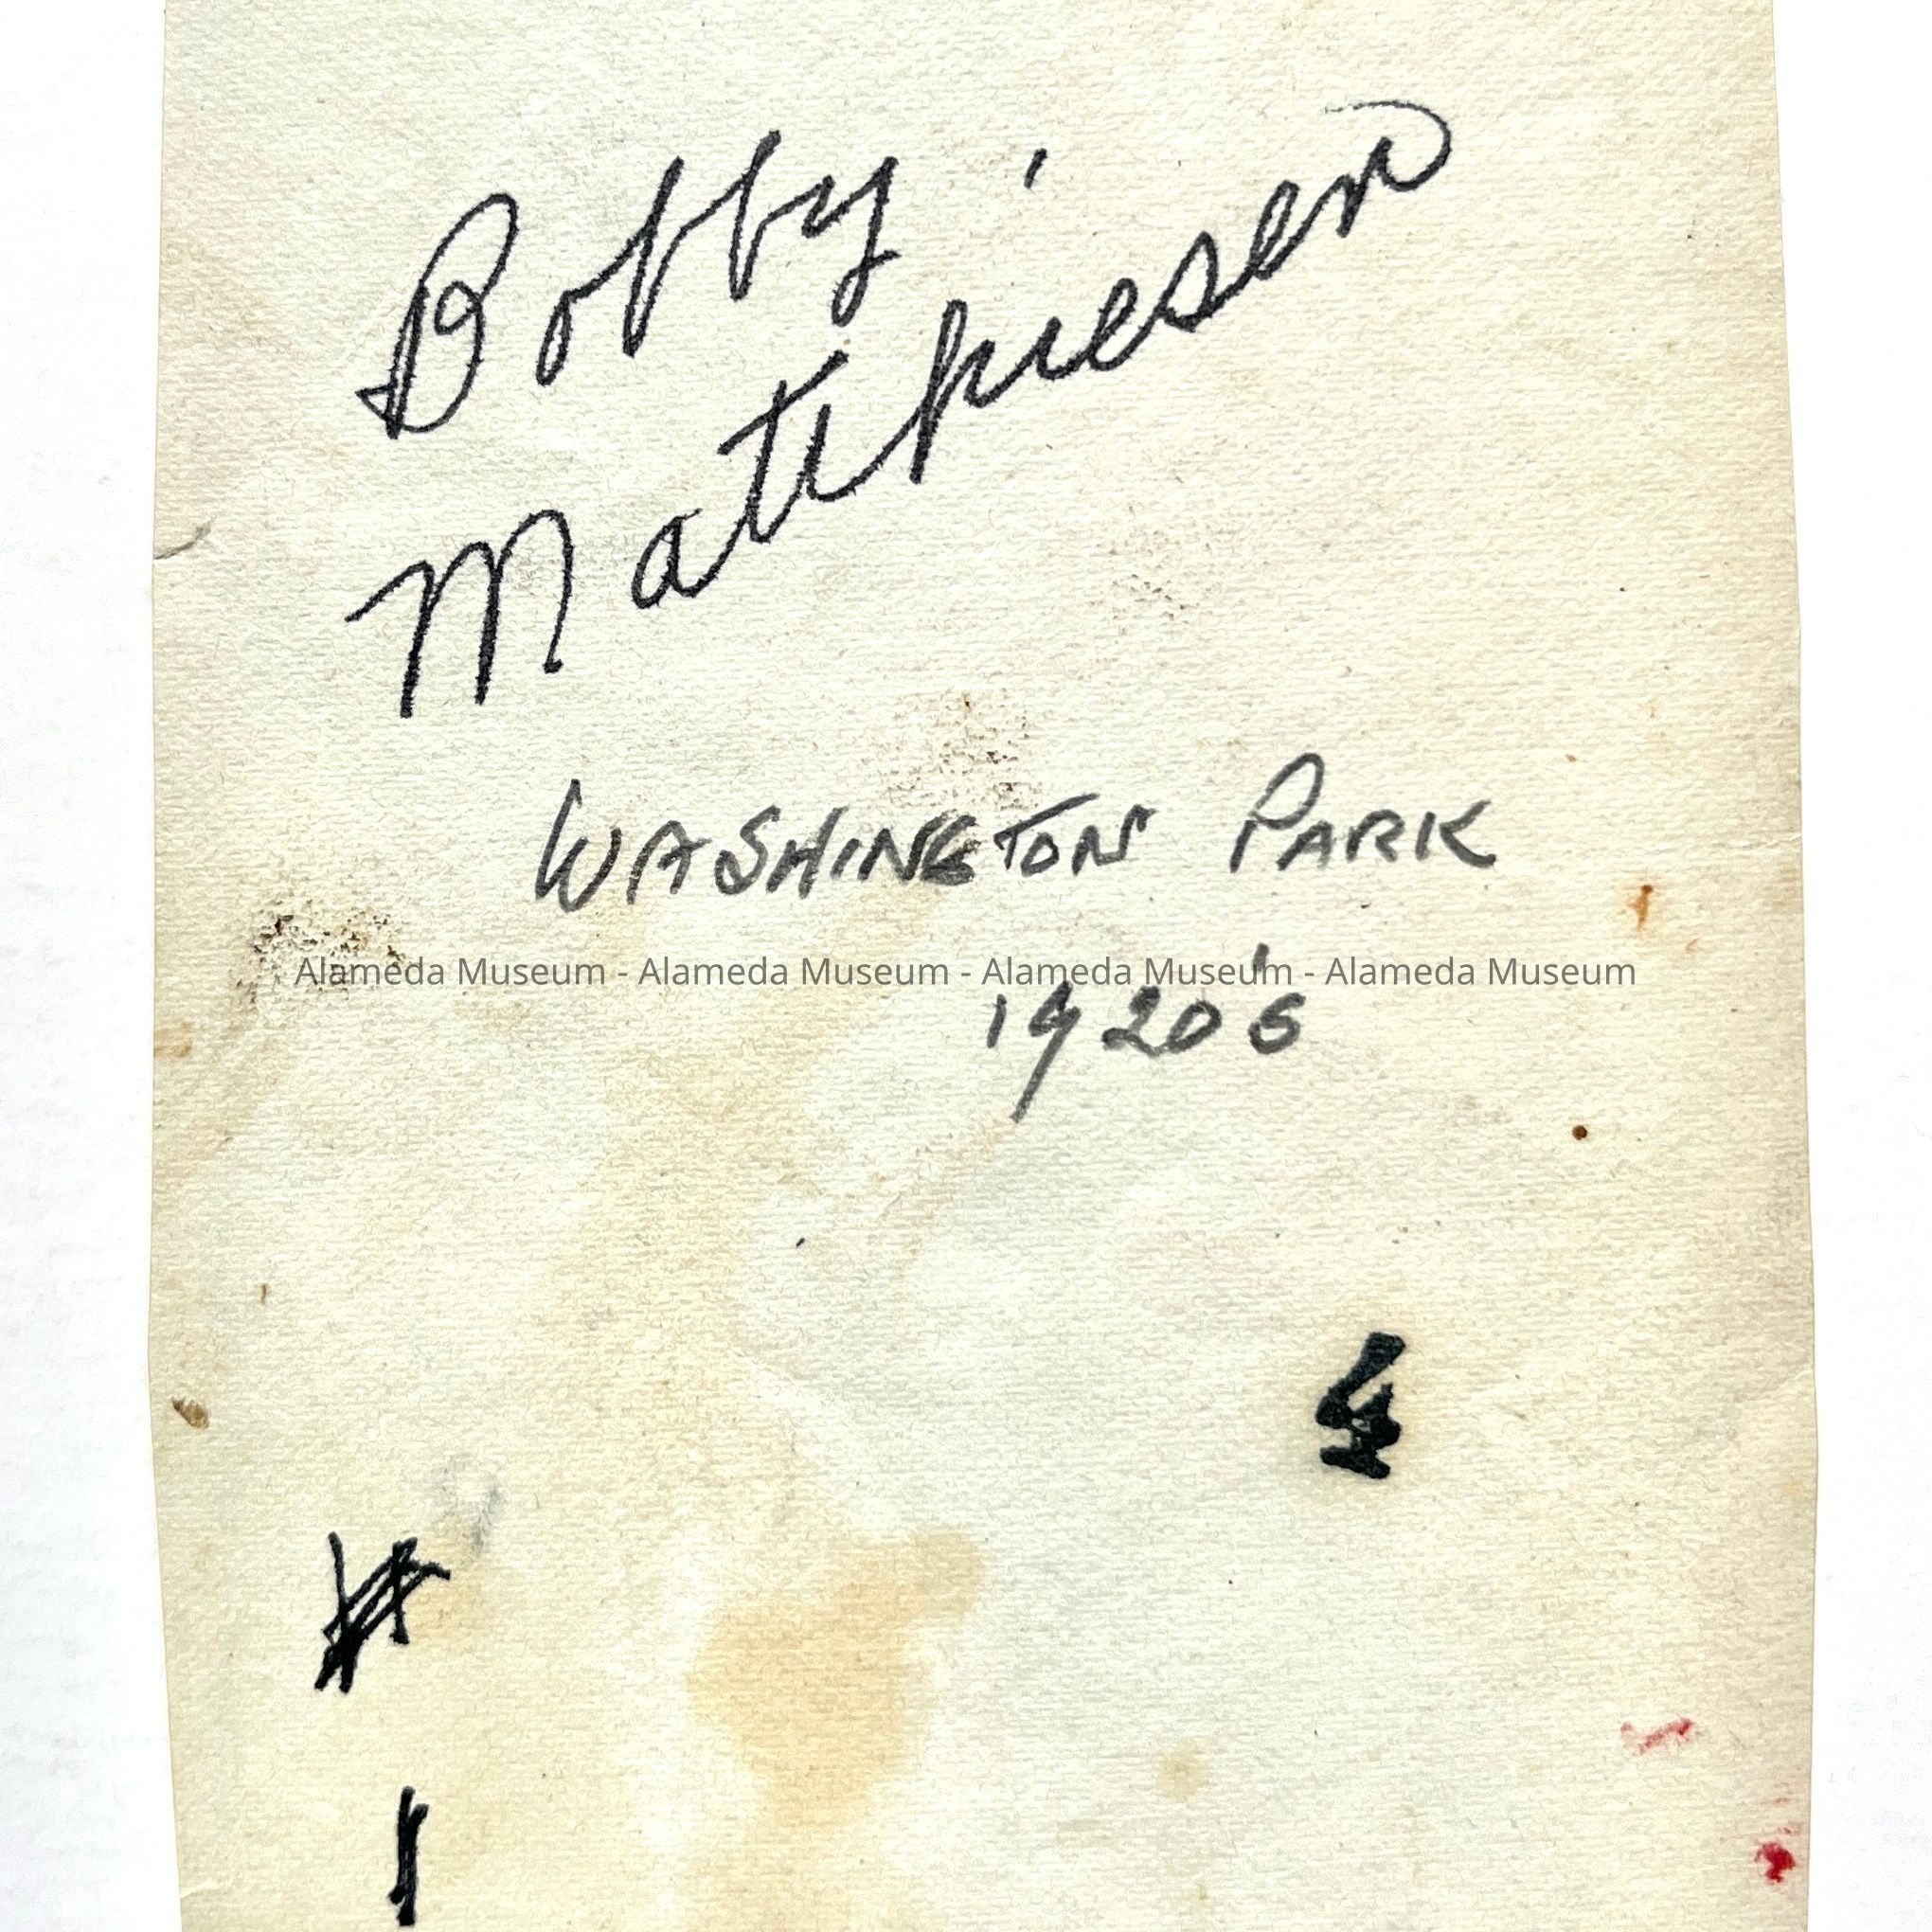 Bobby
Matthiesen
WASHINGTON PARK
Alameda Museum - Alameda Museum - Alameda Museum - Alameda Museum
1920's
4
1